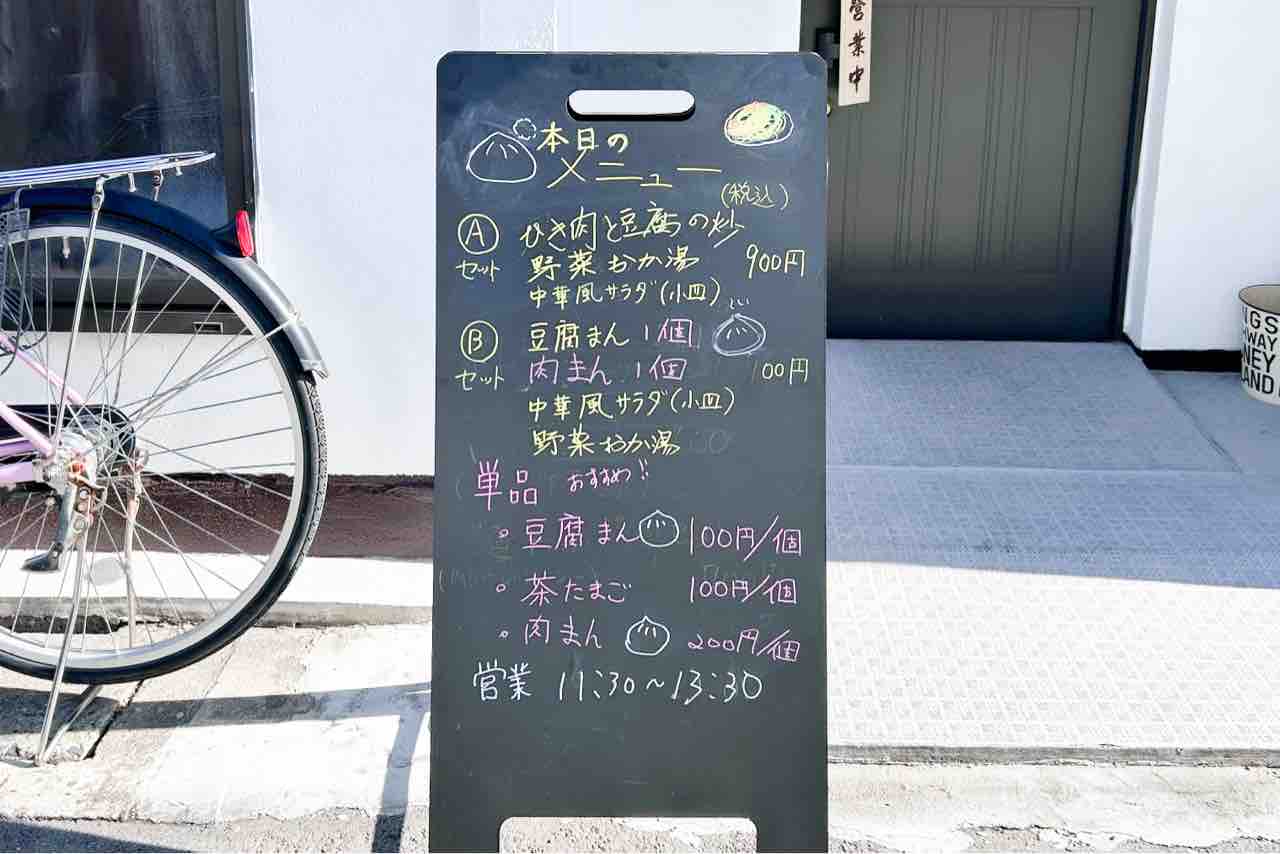 営業中
本日の
メニュー
(税込)
Ⓐ ひき肉と豆腐の炒
セット 野菜おか湯 900円
中華風サラダ(小皿)
Ⓑ 豆腐まん 1個
セット 肉まん 1個 00円
中華風サラダ(小皿)
野菜おか湯
単品 おすすめ!!
・豆腐まん 100円/個
・茶たまご 100円/個
・肉まん 200円/個
営業 11:30~13:30
IGS
AWAY
NEY
LAND